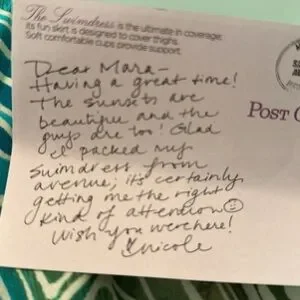 The Swimdress is the ultimate in coverage.
Its fun skirt is designed to cover thighs.
Soft comfortable cups provide support.
Dear Mara-
Having a great time!
The sunsets are
beautiful and the
guys are too! Glad
I packed my
swimdress from
avenue; it's certainly
getting me the right
kind of attention☺
Wish you were here!
Nicole
POST C